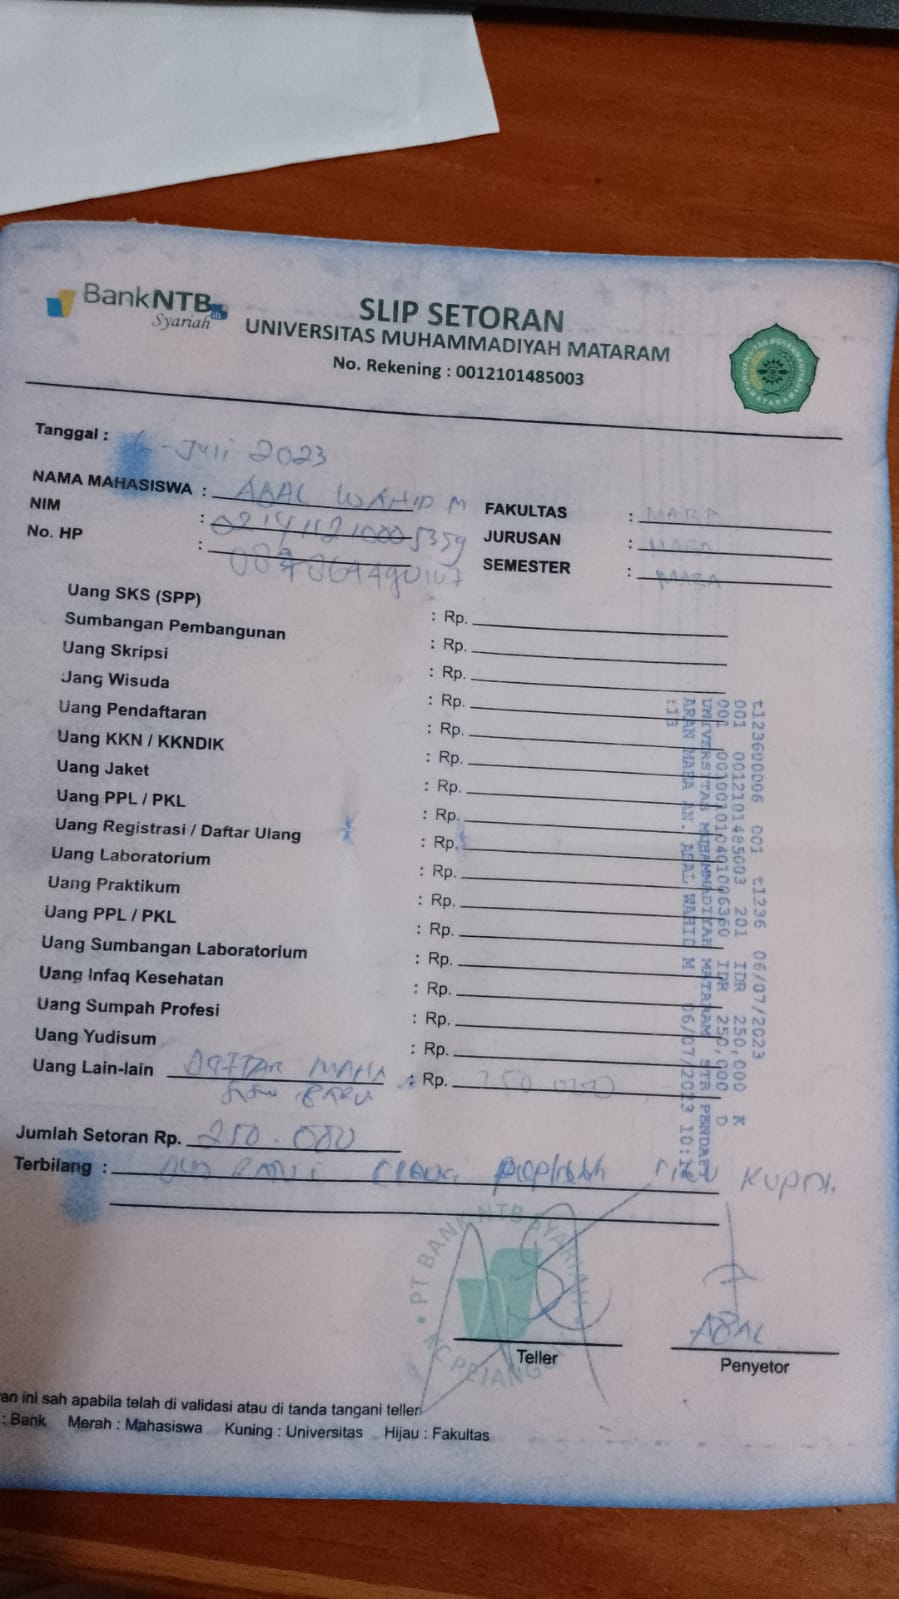 BankNTB
Syariah
SLIP SETORAN
UNIVERSITAS MUHAMMADIYAH MATARAM
No. Rekening : 0012101485003
Tanggal : 6 - Juli 2023
NAMA MAHASISWA : ABAL WAHID M
NIM :
No. HP :
FAKULTAS : MABA
JURUSAN : MABA
SEMESTER : MABA
Uang SKS (SPP) : Rp.
Sumbangan Pembangunan : Rp.
Uang Skripsi : Rp.
Uang Wisuda : Rp.
Uang Pendaftaran : Rp.
Uang KKN / KKNDIK : Rp.
Uang Jaket : Rp.
Uang PPL / PKL : Rp.
Uang Registrasi / Daftar Ulang : Rp.
Uang Laboratorium : Rp.
Uang Praktikum : Rp.
Uang PPL / PKL : Rp.
Uang Sumbangan Laboratorium : Rp.
Uang Infaq Kesehatan : Rp.
Uang Sumpah Profesi : Rp.
Uang Yudisum : Rp.
Uang Lain-lain DAFTAR MAHA : Rp. 250.000
SISWA BARU.
Jumlah Setoran Rp. 250.000
Terbilang :
t123600006 001 t1236 06/07/2023
001 0012101485003 201 IDR 250,000 K
001 0010010401006360 IDR 250,000 D
UNIVERSITAS MUHAMMADIYAH MATARAM STR PENDAFT
ARAN MABA AN. ABAL WAHID M 06/07/2023 10:14
:13
PT BANK NTB SYARIAH
Teller
ABAL
Penyetor
an ini sah apabila telah di validasi atau di tanda tangani teller
: Bank Merah : Mahasiswa Kuning : Universitas Hijau : Fakultas